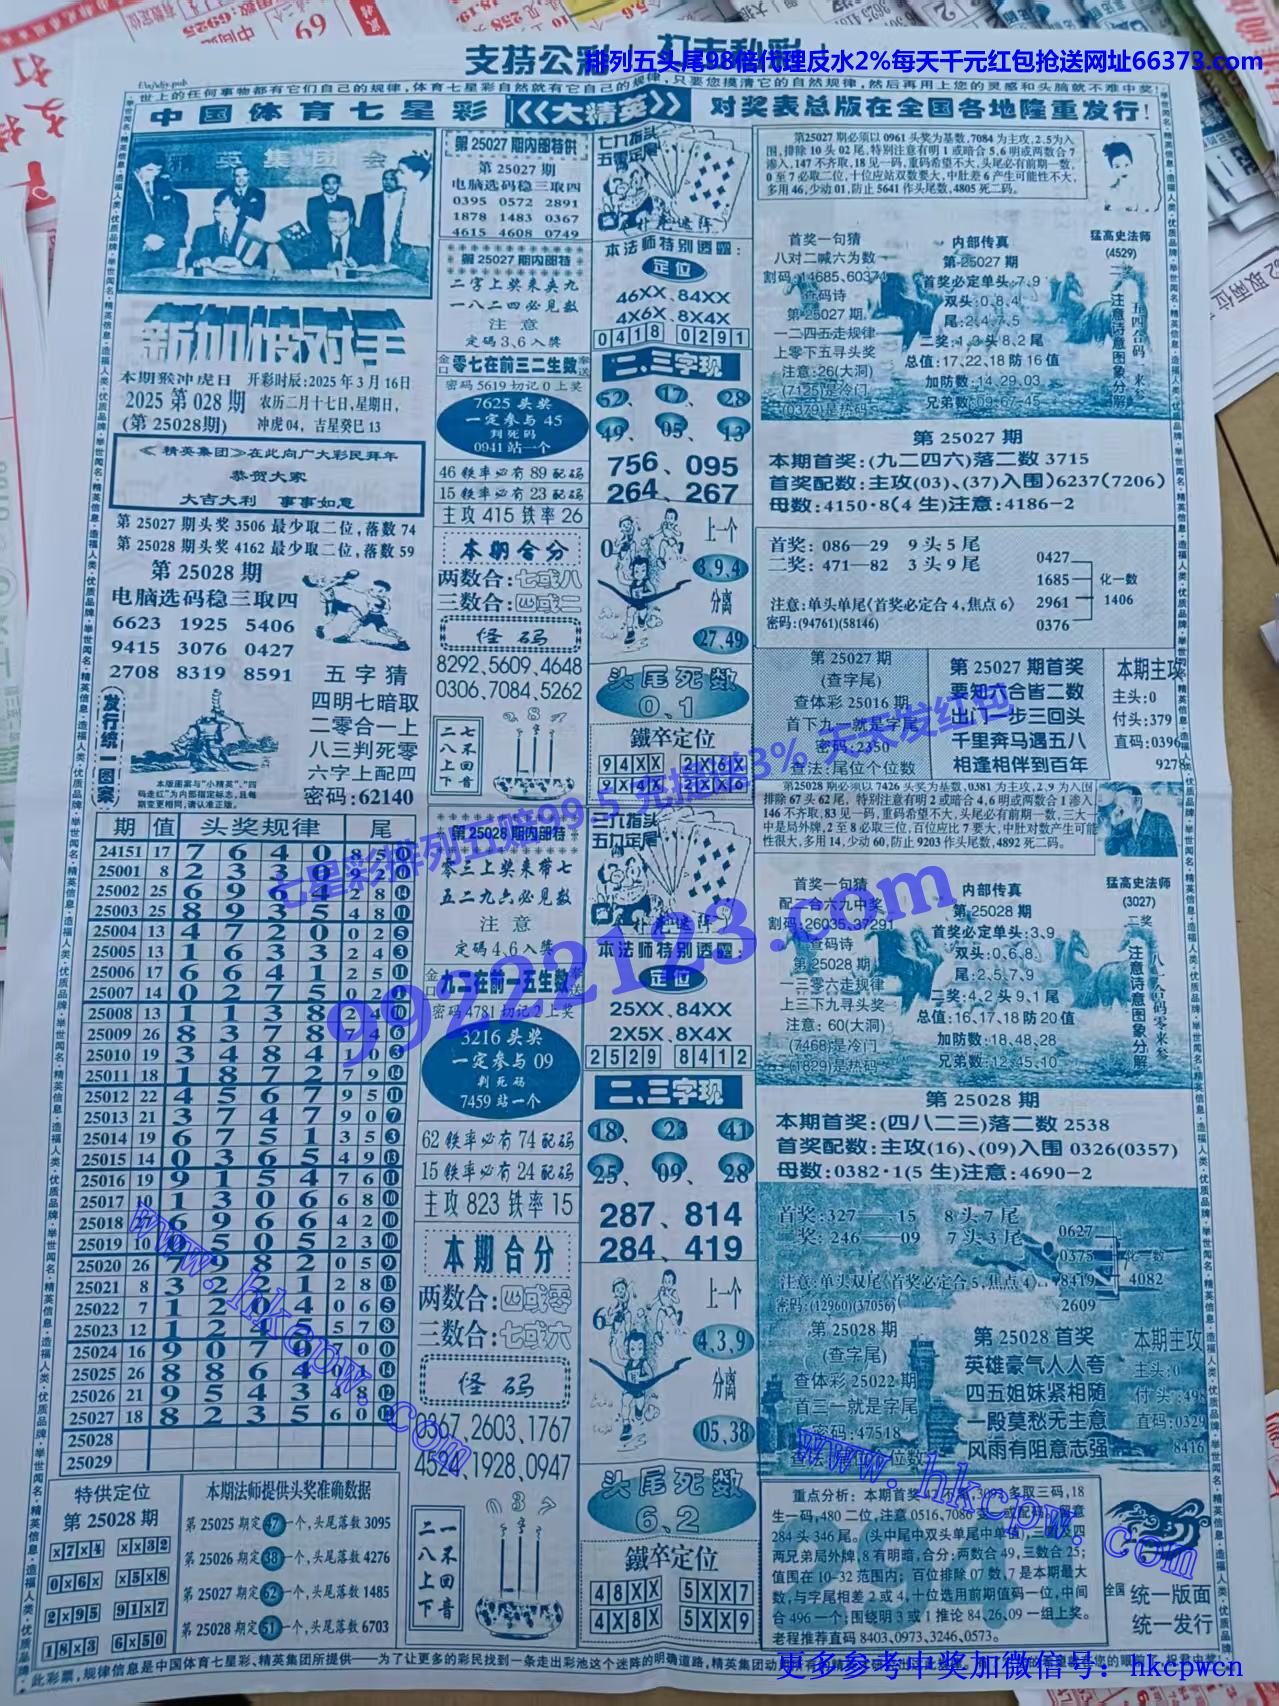 支持公彩
排列五头尾98倍代理反水2%每天千元红包抢送网址66373.com
世上的任何事物都有它们自己的规律,体育七星彩自然就有它自己的规律,只要您摸清它的自然规律,然后再用上您的灵感和头脑就不难中奖!
中国体育七星彩《大精英》对奖表总版在全国各地隆重发行!
本期猴冲虎日 开彩时辰:2025年3月16日
2025第028期 农历二月十七日,星期日,
(第25028期) 冲虎04,吉星癸巳13
《精英集团》在此向广大彩民拜年
恭贺大家
大吉大利 事事如意
第25027期头奖3506最少取二位,落数74
第25028期头奖4162最少取二位,落数59
第25028期
电脑选码稳三取四
6623 1925 5406
9415 3076 0427
2708 8319 8591
发行统一图案
五字猜
四明七暗取
二零合一上
八三判死零
六字上配四
密码:62140
本版图案与"小精英"、"四
码走红"为内部指定标志,且每
期变更相同,请认准正版。
期 值 头奖规律 尾
24151 17 7 6 4 0
25001 8 2 3 3 0
25002 25 6 9 6 4 2 8 ⑭
25003 25 8 9 3 5 4 8 ⑪
25004 13 4 7 2 0 0 2 ⑤
25005 13 1 6 3 3 2 4 ③
25006 17 6 6 4 1 2 5 ⑪
25007 14 0 2 7 5 0 2
25008 13 1 1 3 8 2 4
25009 26 8 3 7 8 7 4 ⑥
25010 19 3 4 8 4 1 0 ③
25011 18 1 8 7 2 7 9 ⑭
25012 22 4 5 6 7 9 5 ⑪
25013 21 3 7 4 7 9 0 ⑦
25014 19 6 7 5 1 3 5 ③
25015 14 0 3 6 5 4 9 ⑬
25016 19 9 1 5 4 7 6 ⑪
25017 10 1 3 0 6 6 8 ⑩
25018 27 6 9 6 6 4 2 ⑩
25019 10 0 5 0 5 2 3 ⑩
25020 26 7 9 8 2 0 5 ⑨
25021 8 3 2 2 1 2 8 ⑬
25022 7 1 2 0 4 0 6 ⑤
25023 12 1 2 4 5 5 7 ⑧
25024 16 9 0 7 0
25025 26 8 8 6 4
25026 21 9 5 4 3 4 8 ⑫
25027 18 8 2 3 5 6 0
25028
25029
特供定位
第25028期
×7×4 ××32
0×6× ×5×8
2×95 91×7
18×3 6×50
本期法师提供头奖准确数据
第25025期定47一个,头尾落数3095
第25026期定38一个,头尾落数4276
第25027期定62一个,头尾落数1485
第25028期定51一个,头尾落数6703
第25027期内部特供
第25027期
电脑选码稳三取四
0395 0572 2891
1878 1483 0367
4615 4608 0749
第25027期内部特
二字上奖来央九
一八二四必见数
注意
定码3,6入奖
零七在前三二生数
密码5619切记0上奖
7625头奖
一定参与45
判死码
0941站一个
46铁率必有89配码
15铁率必有23配码
主攻415铁率26
本期合分
两数合:七或八
三数合:四或二
怪码
8292、5609、4648
0306、7084、5262
8
第25028期内部特
零三上奖来带七
五二九六必见数
注意
定码4,6入奖
九三在前一五生数
密码4781切记2上奖
3216头奖
一定参与09
判死码
7459站一个
62铁率必有74配码
15铁率必有24配码
主攻823铁率15
本期合分
两数合:四或零
三数合:七或六
怪码
0567、2603、1767
1928、0947
3
本法师特别透露:
定位
46XX、84XX
4X6X、8X4X
0418 0291
二、三字现
52、17、28
49、05、13
756、095
264、267
上一个
3,9,4
分离
27,49
头尾死数
0,1
鐵卒定位
94XX 2X6X
9X4X 2XX6
本法师特别透露:
定位
25XX、84XX
2X5X、8X4X
2529 8412
二、三字现
18、23、41
25、09、28
287、814
284、419
上一个
4,3,9
分离
05,38
头尾死数
6,2
鐵卒定位
48XX 5XX7
4X8X 5XX9
第25027期必须以0961头奖为基数,7084为主攻,2.5为入
围,排除10头02尾,特别注意有明1或暗合5,6明或两数合7
渗入,147不齐取,18见一码,重码希望不大,头尾必有前期一数,
0至7必取二位,十位应站双数要大,中肚差6产生可能性不大,
多用46,少动01,防止5641作头尾数,4805死二码。
首奖一句猜
八对二喊六为数
割码:14685,60374
查码诗
第25027期
一二四五走规律
上零下五寻头奖
注意:26(大洞)
(7125)是冷门
(0379)是热码
内部传真
第25027期
首奖必定单头:7,9
双头:0,8,4
尾:2,4,7,5
二奖:1,3头8,2尾
总值:17,22,18防16值
加防数:14,29,03
兄弟数:09,67,45
猛高史法师
(4529)
注意诗意图象分解
第25027期
本期首奖:(九二四六)落二数3715
首奖配数:主攻(03)、(37)入围)6237(7206)
母数:4150·8(4生)注意:4186-2
首奖:086—29 9头5尾
二奖:471—82 3头9尾
注意:单头单尾〈首奖必定合4,焦点6〉
密码:(94761)(58146)
0427
1685
2961
0376
化一数
1406
第25027期
(查字尾)
查体彩25016期
首下九一就是字尾
密码:2350
查法:尾位个位数
第25027期首奖
要知六合皆二数
出门一步三回头
千里奔马遇五八
相逢相伴到百年
本期主攻
主头:0
付头:379
直码:0396
9278
第25028期必须以7426头奖为基数,0381为主攻,2.9为入围
排除67头62尾,特别注意有明2或暗合4,6明或两数合1渗入,
146不齐取,83见一码,重码希望不大,头尾必有前期一数,三大一
中是局外牌,2至8必取三位,百位应比7要大,中肚对数产生可能
性很大,多用14,少动60,防止9203作头尾数,4892死二码。
首奖一句猜
配二合六九中奖
割码:26035,37291
查码诗
第25028期
一三零六走规律
上三下九寻头奖
注意:60(大洞)
(7468)是冷门
(1829)是热码
内部传真
第25028期
首奖必定单头:3,9
双头:0,6,8
尾:2,5,7,9
二奖:4,2头9,1尾
总值:16,17,18防20值
加防数:18,48,28
兄弟数:12,45,10
猛高史法师
(3027)
二奖
注意诗意图象分解
第25028期
本期首奖:(四八二三)落二数2538
首奖配数:主攻(16)、(09)入围0326(0357)
母数:0382·1(5生)注意:4690-2
首奖:327—15 8头7尾
二奖:246—09 7头3尾
注意:单头双尾〈首奖必定合5,焦点4〉
密码:(12960)(37056)
0627
0375
8419
2609
化一数
4082
第25028期
(查字尾)
查体彩25022期
首三一就是字尾
密码:47518
第25028首奖
英雄豪气人人夸
四五姐妹紧相随
一殿莫愁无主意
风雨有阻意志强
本期主攻
主头:0
付头:498
直码:0329
8416
生一码,480二位,注意0516,7086头
284头346尾。(头中尾中双头单尾中单值),三四及四
两兄弟局外牌,8有明暗,合分:两数合49,三数合25;
值围在10-32范围内;百位排除07数,7是本期最大
数,与字尾相差2或4,十位选用前期值码一位,中间
合496一个;围绕明3或1推论84,26,09一组上奖。
老程推荐直码8403、0973、3246、0573。
全国 统一版面
统一发行
99222123.com
www.hkcpw.com
www.hkcpw.com
更多参考中奖加微信号: hkcpwcn